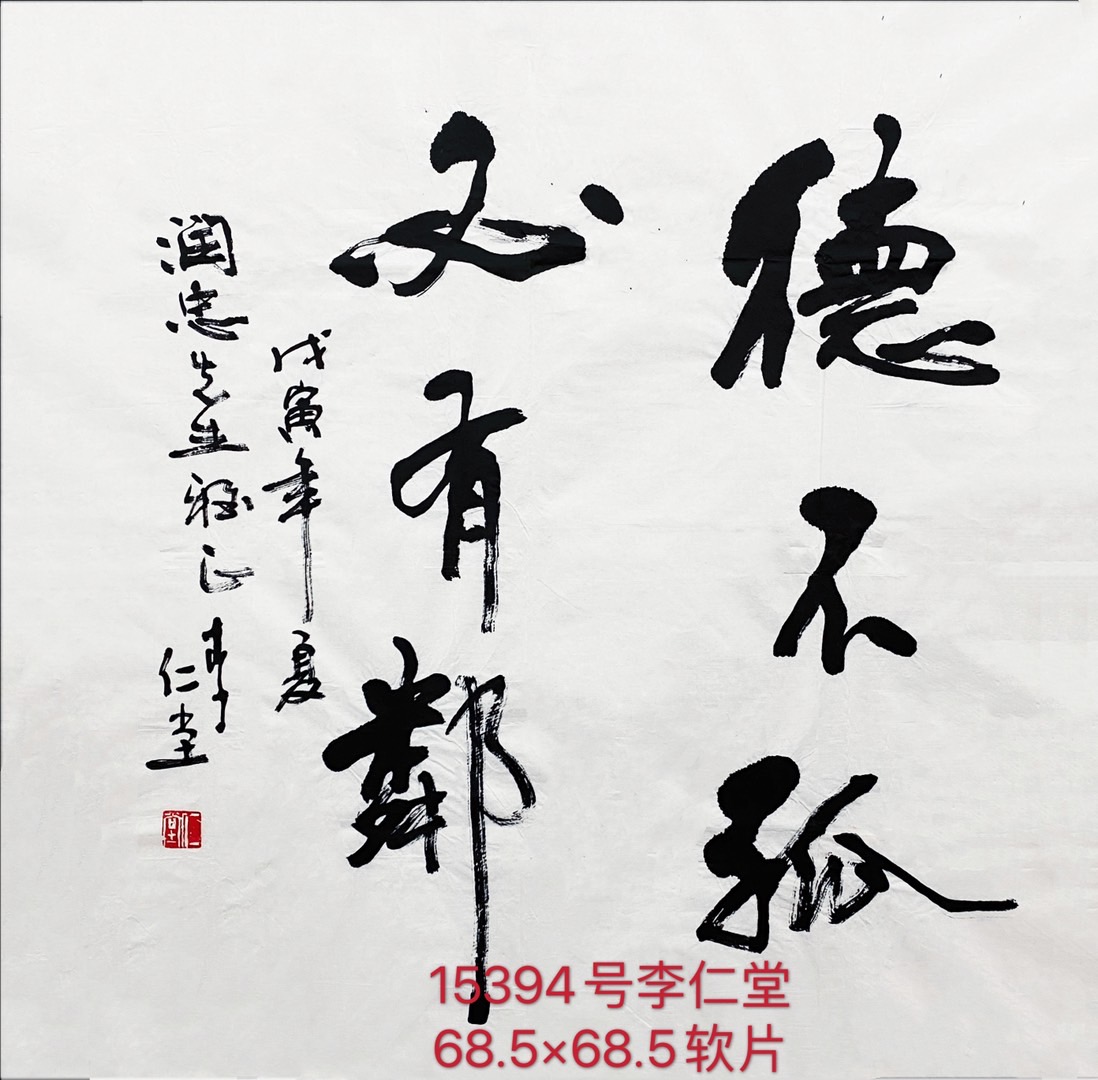 德不孤
必有鄰
戊寅年夏
润忠先生雅正
李仁堂
仁堂
15394号李仁堂
68.5×68.5软片